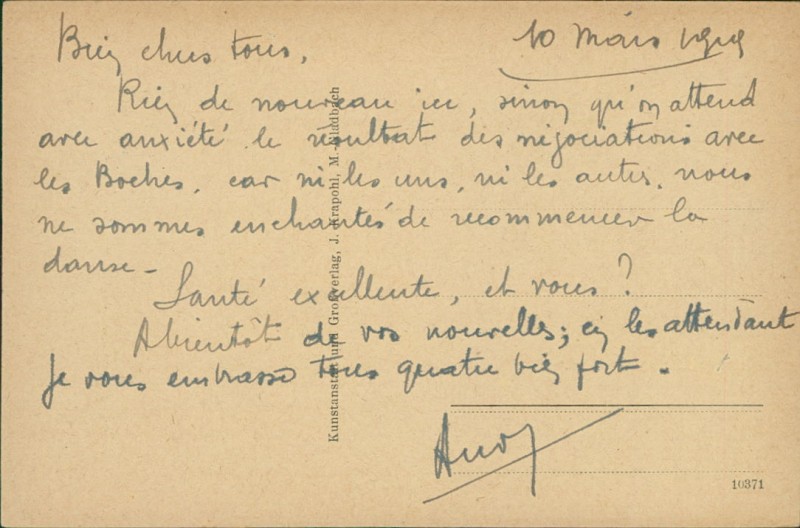 10 Mars 1919
Bien chers tous,
Rien de nouveau ici, sinon qu'on attend
avec anxiété le résultat des négociations avec
les Boches, car ni les uns, ni les autres, nous
ne sommes enchantés de recommencer la
danse -
Santé excellente, et vous ?
A bientôt de vos nouvelles; en les attendant
je vous embrasse tous quatre bien fort.
Kunstanstalt und Großverlag, J. Krapohl, M.-Gladbach
10371